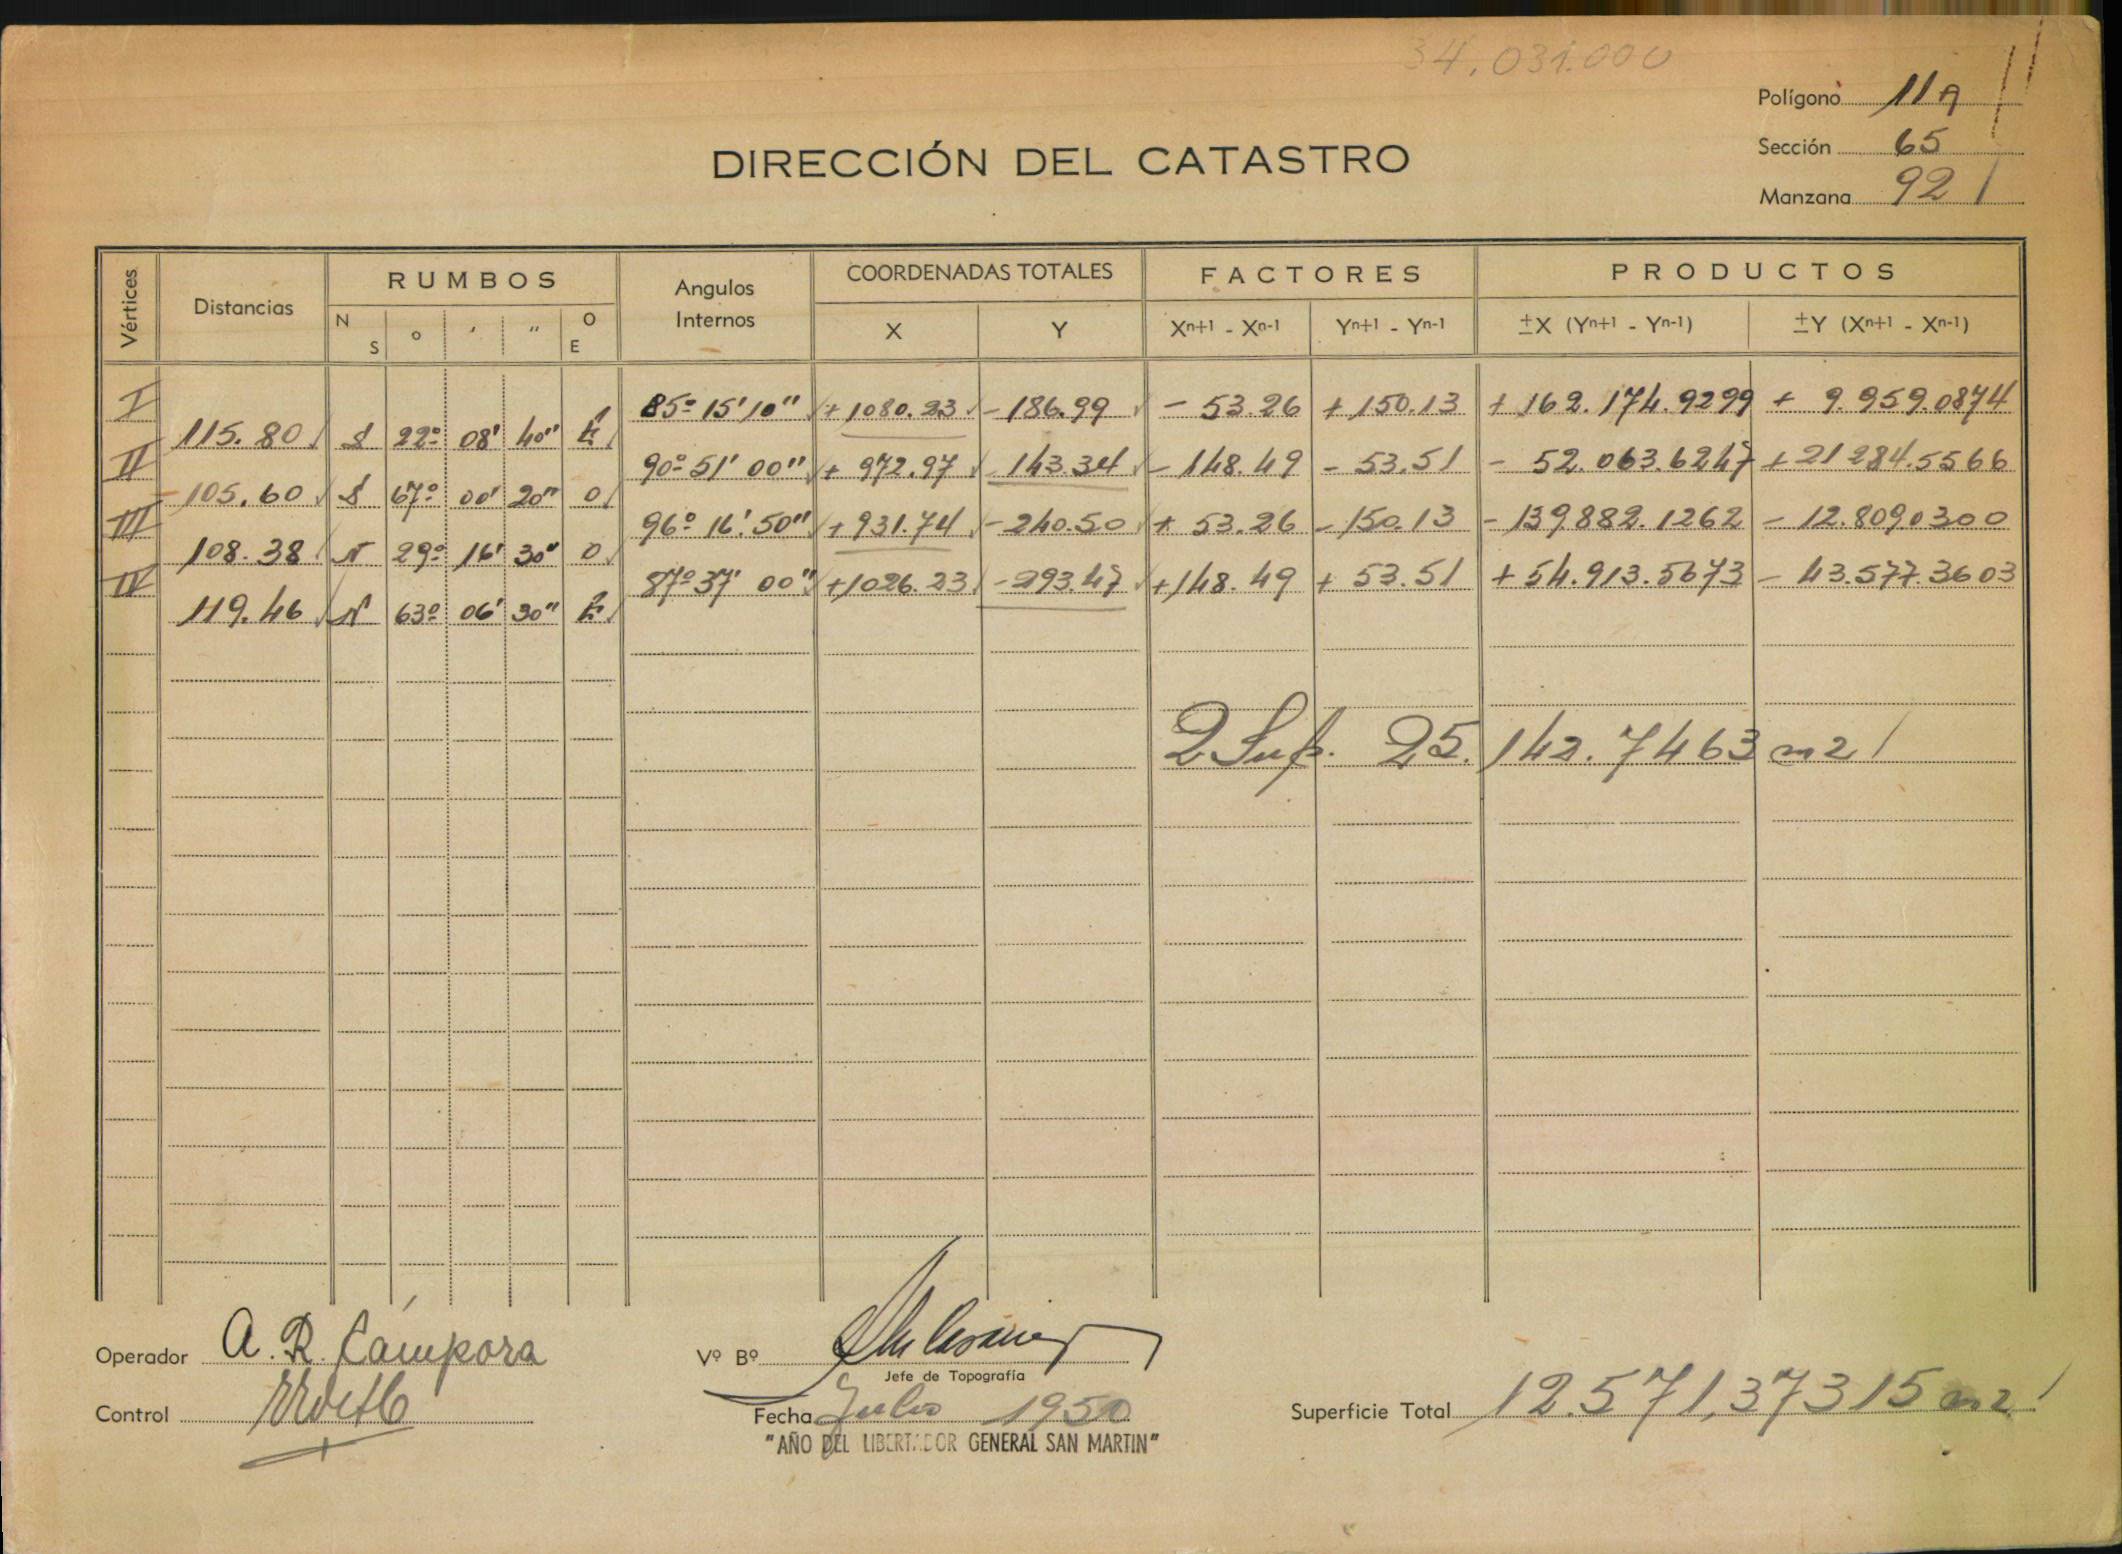 34.031.000
Polígono 11A
Sección 65
Manzana 92
DIRECCIÓN DEL CATASTRO
Vértices Distancias RUMBOS Angulos Internos COORDENADAS TOTALES FACTORES PRODUCTOS
N S o ' " O E X Y Xn+1 - Xn-1 Yn+1 - Yn-1 ±X (Yn+1 - Yn-1) ±Y (Xn+1 - Xn-1)
I 85º 15' 10" +1080.23 -186.99 - 53.26 +150.13 + 162.174.9299 + 9.959.0874
115.80 S 22º 08' 40" E
II 90º 51' 00" + 972.97 - 143.34 - 148.49 - 53.51 - 52.063.6247 + 21284.5566
105.60 S 67º 00' 20" O
III 96º 16' 50" + 931.74 - 240.50 + 53.26 - 150.13 - 139882.1262 - 12.809.0300
108.38 N 29º 16' 30" O
IV 87º 37' 00" +1026.23 - 293.47 +148.49 + 53.51 + 54.913.5673 - 43.577.3603
119.46 N 63º 06' 30" E
2 Sup. 25.142.7463 m2
Operador A. R. Cámpora
Vº Bº
Jefe de Topografía
Control
Fecha Julio 1950
"AÑO DEL LIBERTADOR GENERAL SAN MARTIN"
Superficie Total 12.571,37315 m2